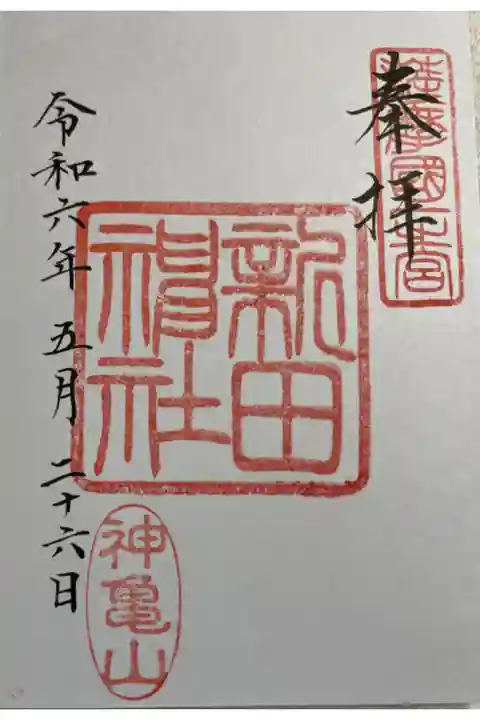 奉拝
新田
神社
神亀山
令和六年 五月 二十六日